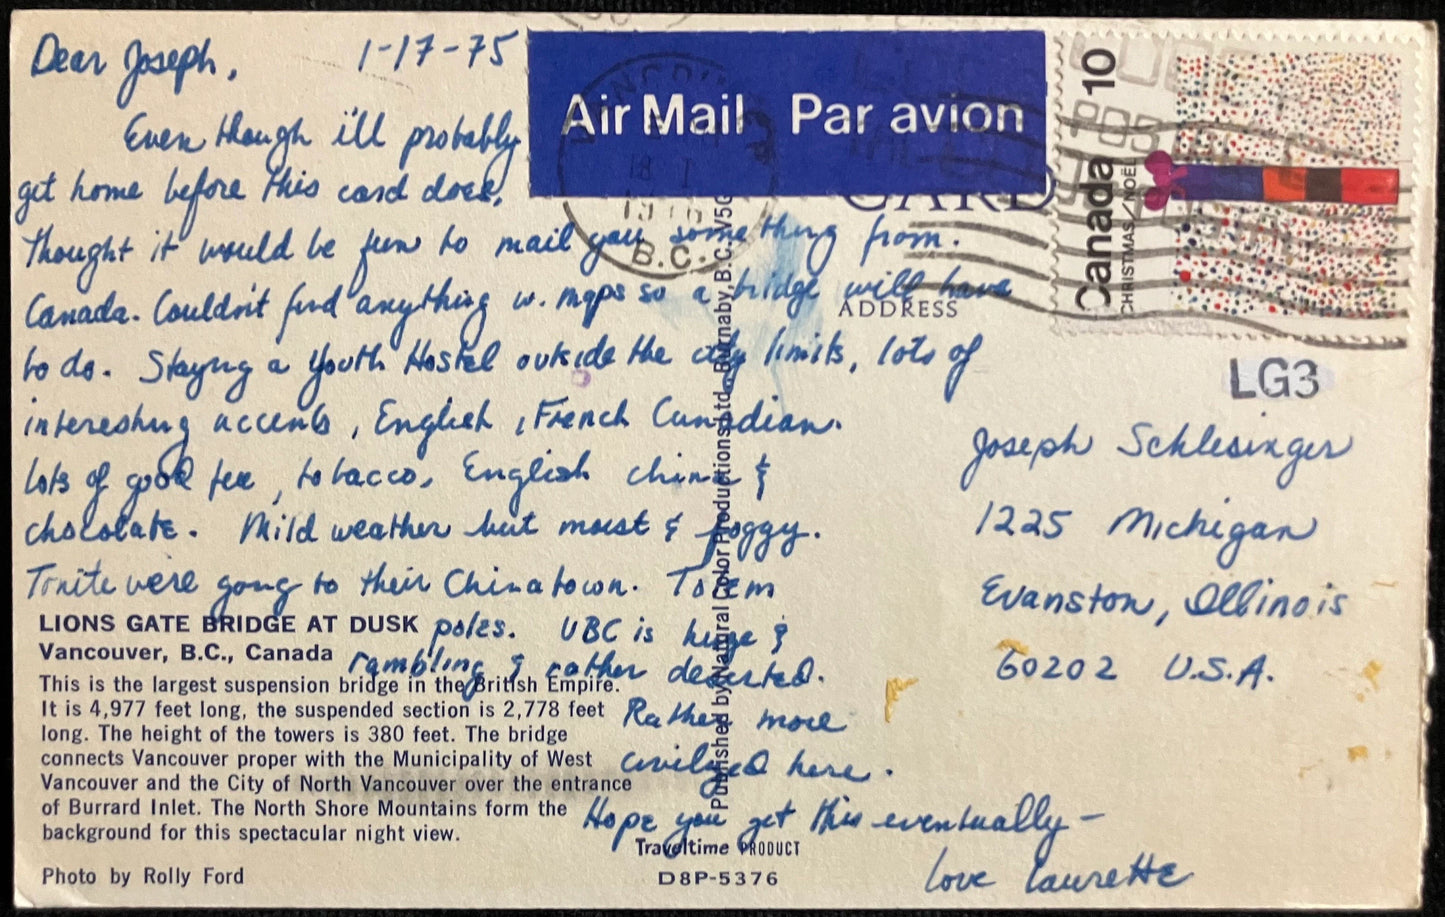 Dear Joseph,
1-17-75
Even though i'll probably
get home before this card does,
thought it would be fun to mail you something from
Canada. Couldn't find anything w. maps so a bridge will have
to do. Staying a Youth Hostel outside the city limits, lots of
interesting accents, English, French Canadian.
lots of good tea, tobacco, English china &
chocolate. Mild weather but moist & foggy.
Tonite we're going to their Chinatown. Totem
poles. UBC is huge &
rambling & rather deserted.
Rather more
civilized here.
Hope you get this eventually -
love Laurette
LIONS GATE BRIDGE AT DUSK
Vancouver, B.C., Canada
This is the largest suspension bridge in the British Empire.
It is 4,977 feet long, the suspended section is 2,778 feet
long. The height of the towers is 380 feet. The bridge
connects Vancouver proper with the Municipality of West
Vancouver and the City of North Vancouver over the entrance
of Burrard Inlet. The North Shore Mountains form the
background for this spectacular night view.
Photo by Rolly Ford
Traveltime PRODUCT
D8P-5376
Published by Natural Color Productions Ltd., Burnaby, B.C. V5G
Air Mail Par avion
B.C.
CARD
ADDRESS
Canada 10
CHRISTMAS/NOËL
LG3
Joseph Schlesinger
1225 Michigan
Evanston, Illinois
60202 U.S.A.